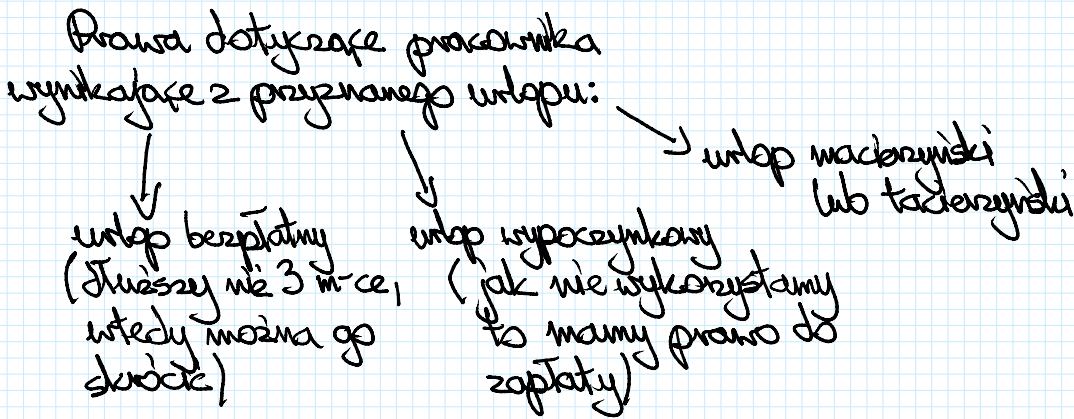 Prawa dotyczące pracownika
wynikające z przyznanego urlopu:
urlop bezpłatny
(dłuższy niż 3 m-ce,
wtedy można go
skrócić)
urlop wypoczynkowy
(jak nie wykorzystamy
to mamy prawo do
zapłaty)
urlop macierzyński
lub tacierzyński